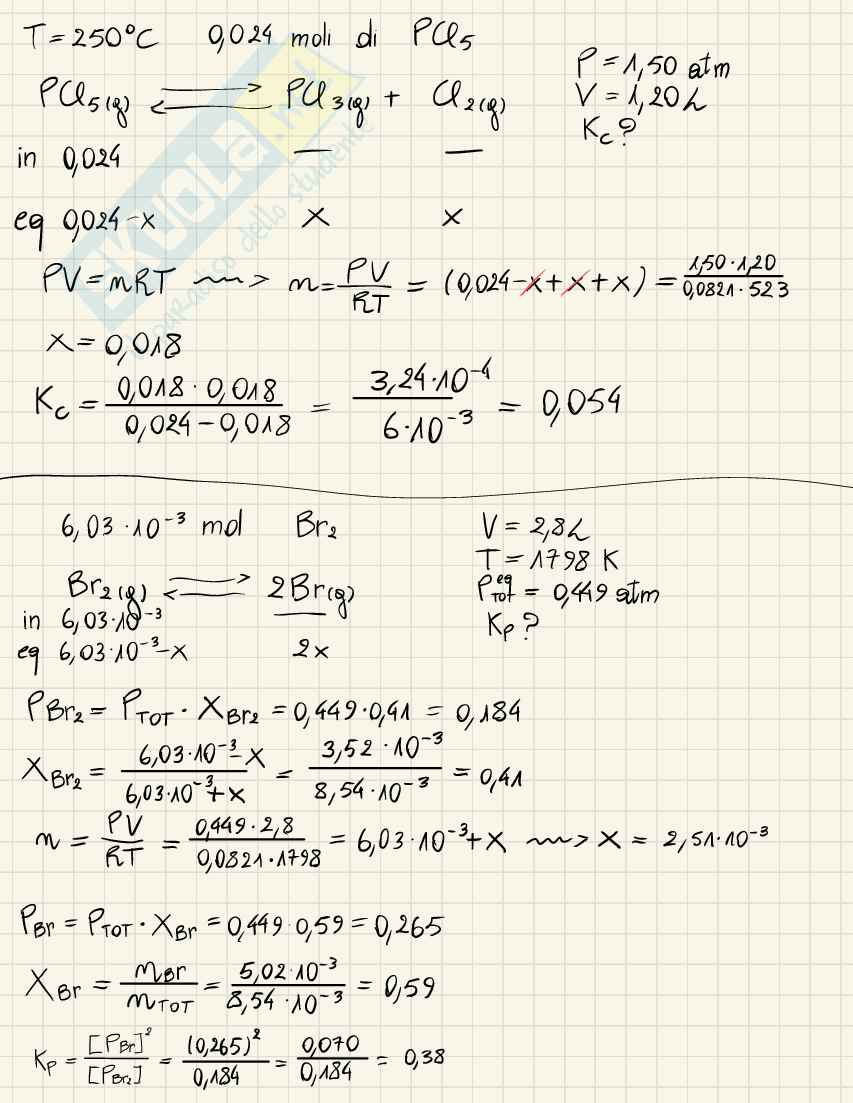 T=250°C 0,024 moli di PCl₅
P=1,50 atm
PCl₅(g) ⇌ PCl₃(g) + Cl₂(g)
V=1,20L
Kc?
in 0,024 — —
eq 0,024-x x x
PV=nRT ~~> n=PV/RT = (0,024-x+x+x) = 1,50·1,20/0,0821·523
x=0,018
Kc = 0,018·0,018/0,024-0,018 = 3,24·10⁻⁴/6·10⁻³ = 0,054
SKUOLA.net
il paradiso dello studente
6,03·10⁻³ mol Br₂
V=2,8L
T=1798 K
Br₂(g) ⇌ 2Br(g)
P eq TOT = 0,449 atm
in 6,03·10⁻³ —
Kp?
eq 6,03·10⁻³-x 2x
PBr₂ = PTOT · XBr₂ = 0,449·0,41 = 0,184
XBr₂ = 6,03·10⁻³-x/6,03·10⁻³+x = 3,52·10⁻³/8,54·10⁻³ = 0,41
n = PV/RT = 0,449·2,8/0,0821·1798 = 6,03·10⁻³+x ~~> x = 2,51·10⁻³
PBr = PTOT · XBr = 0,449·0,59 = 0,265
XBr = nBr/nTOT = 5,02·10⁻³/8,54·10⁻³ = 0,59
Kp = [PBr]²/[PBr₂] = (0,265)²/0,184 = 0,070/0,184 = 0,38